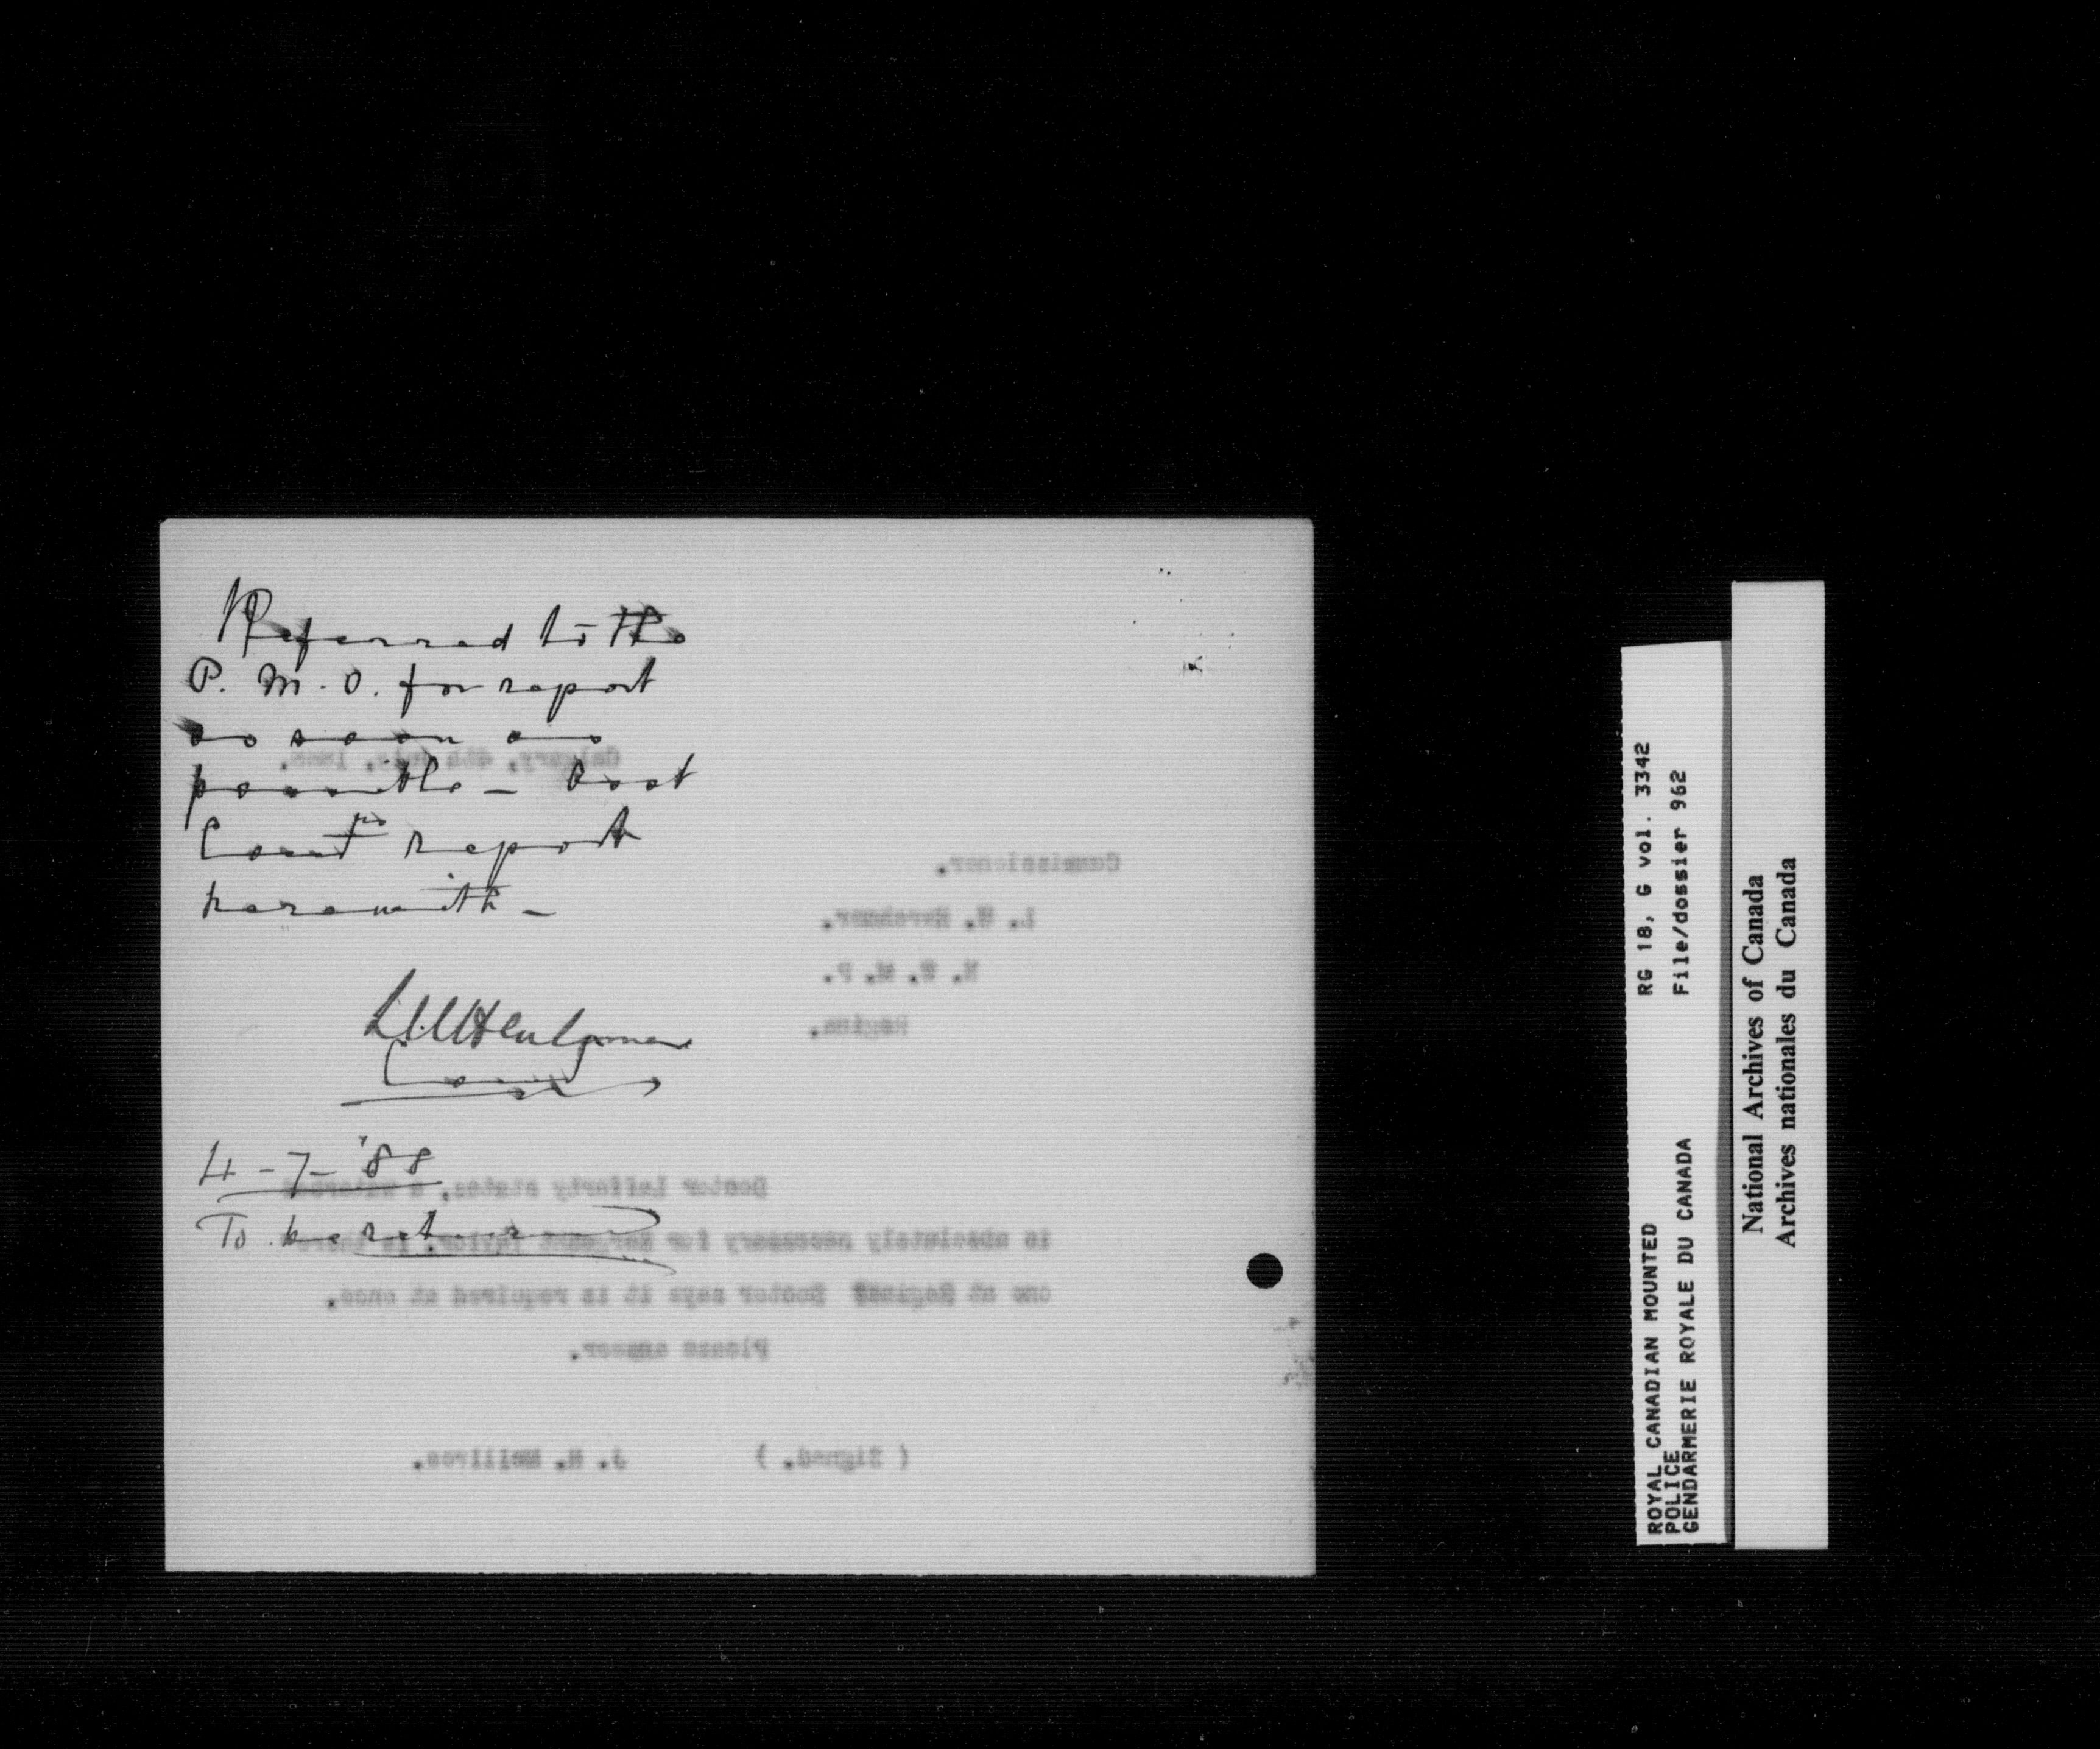 Referred to the
P. M. O. for report
as soon as
possible – Asst
Comr's report
herewith –
Comr
4-7-'88
To be returned
Calgary, 4th July, 1888.
Commissioner.
L. W. Herchmer.
N. W. M. P.
Regina.
Doctor Lafferty states, a waterbed
is absolutely necessary for Sergeant Taylor, is there
one at Regina? Doctor says it is required at once.
Please answer.
( Signed. ) J. H. McIllree.
ROYAL CANADIAN MOUNTED RG 18, G vol. 3342
POLICE File/dossier 962
GENDARMERIE ROYALE DU CANADA
National Archives of Canada
Archives nationales du Canada